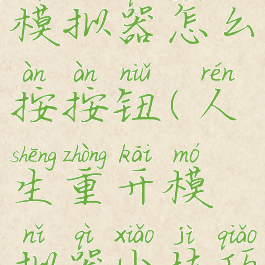 模拟器怎么
àn àn niǔ rén
按按钮(人
shēng zhòng kāi mó
生重开模
nǐ qì xiǎo jì qiǎo
拟器小技巧